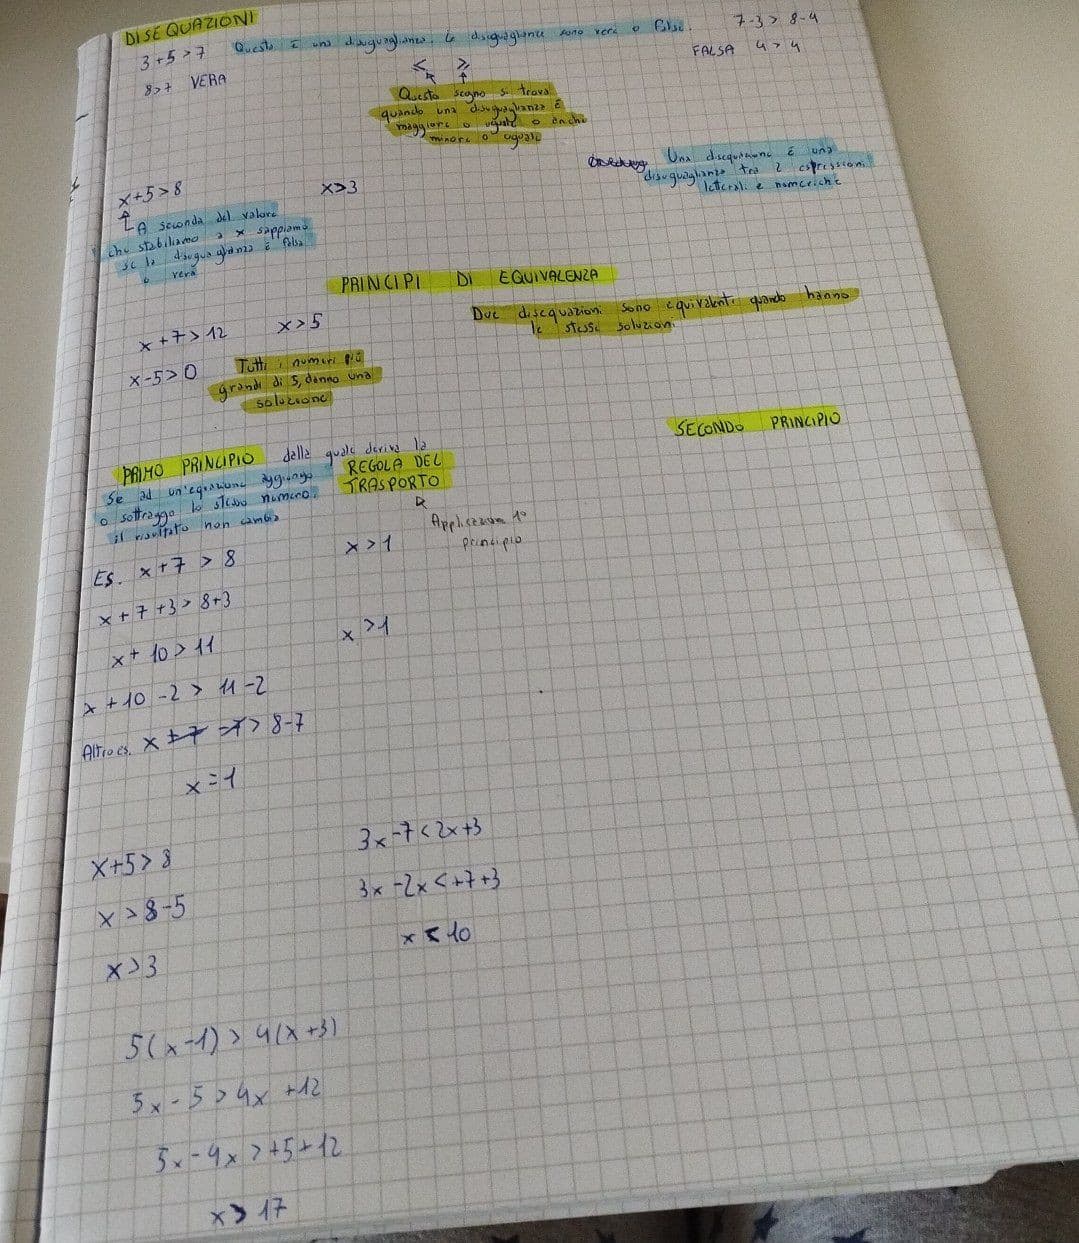 DISEQUAZIONI
3+5>7
Questa è una disuguaglianza. Le disuguaglianze sono vere o false.
7-3 > 8-4
8>7 VERA
FALSA 4 > 4
≤ ≥
Questo segno si trova
quando una disuguaglianza è
maggiore o uguale o anche
minore o uguale
Una disequazione è una
disuguaglianza tra 2 espressioni
letterali e numeriche
x+5>8
x>3
A seconda del valore
che stabiliamo a x sappiamo
se la disuguaglianza è falsa
o vera
PRINCIPI DI EQUIVALENZA
Due disequazioni sono equivalenti quando hanno
le stesse soluzioni
x+7>12 x>5
x-5>0
Tutti i numeri più
grandi di 5, danno una
soluzione
SECONDO PRINCIPIO
PRIMO PRINCIPIO dalla quale deriva la
REGOLA DEL
TRASPORTO
Se ad un'equazione aggiungo
o sottraggo lo stesso numero,
il risultato non cambia
Applicazione 1°
principio
Es. x+7 > 8
x>1
x+7+3> 8+3
x+10>11
x>1
x+10-2 > 11-2
Altro es. x +7 -7> 8-7
x=1
x+5>8
x>8-5
x>3
3x-7<2x+3
3x-2x<+7+3
x<10
5(x-1)>4(x+3)
5x-5>4x+12
5x-4x>+5+12
x>17